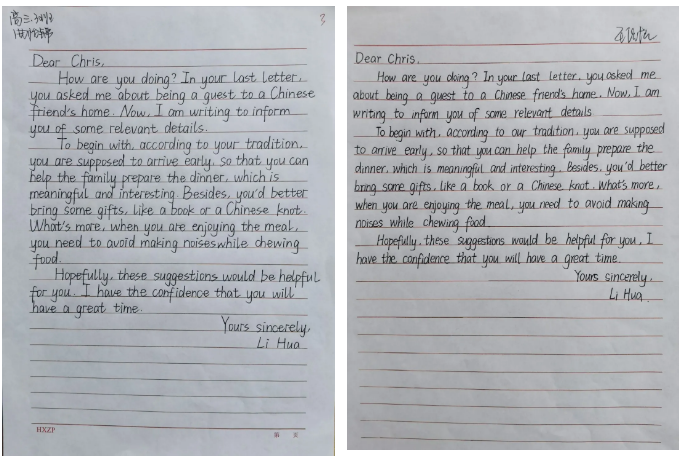 高三
3
Dear Chris,
How are you doing? In your last letter,
you asked me about being a guest to a Chinese
friend's home. Now, I am writing to inform
you of some relevant details.
To begin with, according to your tradition,
you are supposed to arrive early, so that you can
help the family prepare the dinner, which is
meaningful and interesting. Besides, you'd better
bring some gifts, like a book or a Chinese knot.
What's more, when you are enjoying the meal,
you need to avoid making noises while chewing
food.
Hopefully, these suggestions would be helpful
for you. I have the confidence that you will
have a great time.
Yours sincerely,
Li Hua
HXZP
第 页
Dear Chris,
How are you doing? In your last letter, you asked me
about being a guest to a Chinese friend's home. Now, I am
writing to inform you of some relevant details
To begin with, according to our tradition, you are supposed
to arrive early, so that you can help the family prepare the
dinner, which is meaningful and interesting. Besides, you'd better
bring some gifts, like a book or a Chinese knot. What's more,
when you are enjoying the meal, you need to avoid making
noises while chewing food.
Hopefully, these suggestions would be helpful for you, I
have the confidence that you will have a great time.
Yours sincerely,
Li Hua